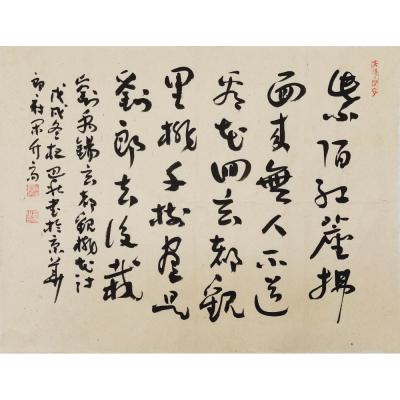 紫陌红尘拂
面来無人不道
看花回玄都觀
里桃千樹盡是
劉郎去後栽
劉禹錫玄都觀桃花詩
戊戌冬
書於京華